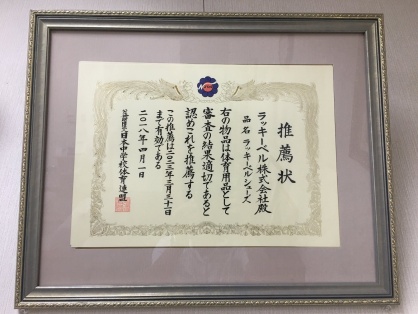 推薦状
ラッキーベル株式会社殿
品名 ラッキーベルシューズ
右の物品は体育用品として
審査の結果適切であると
認めこれを推薦する
この推薦は二〇二三年三月三十一日
まで有効である
二〇一八年四月一日
公益財団法人日本中学校体育連盟